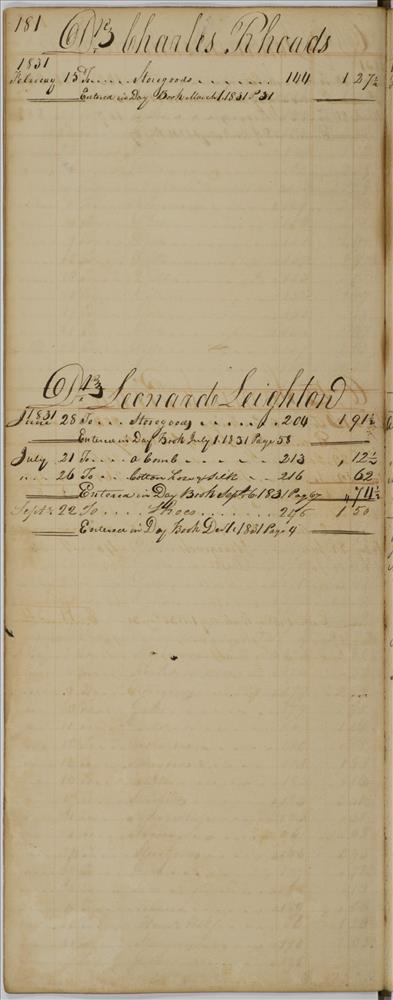 181 Dr. Charles Rhoads
1831
February 15 To..... Storegoods........ 144 1 27½
Entered in Day Book March 1 1831 P 31
Dr. Leonard Leighton
1831
June 28 To.... Storegoods........ 204 1 91½
Entered in Day Book July 1. 1831 Page 58
July 21 To.... a Comb...... 213 ,, 12½
,, 26 To... Cotton & Silk... 216 62
Entered in Day Book Sept 6 1831 Page 67 ,, 74½
Septr 22 To.... Shoes....... 246 1 50
Entered in Day Book Dec 1 1831 Page 4